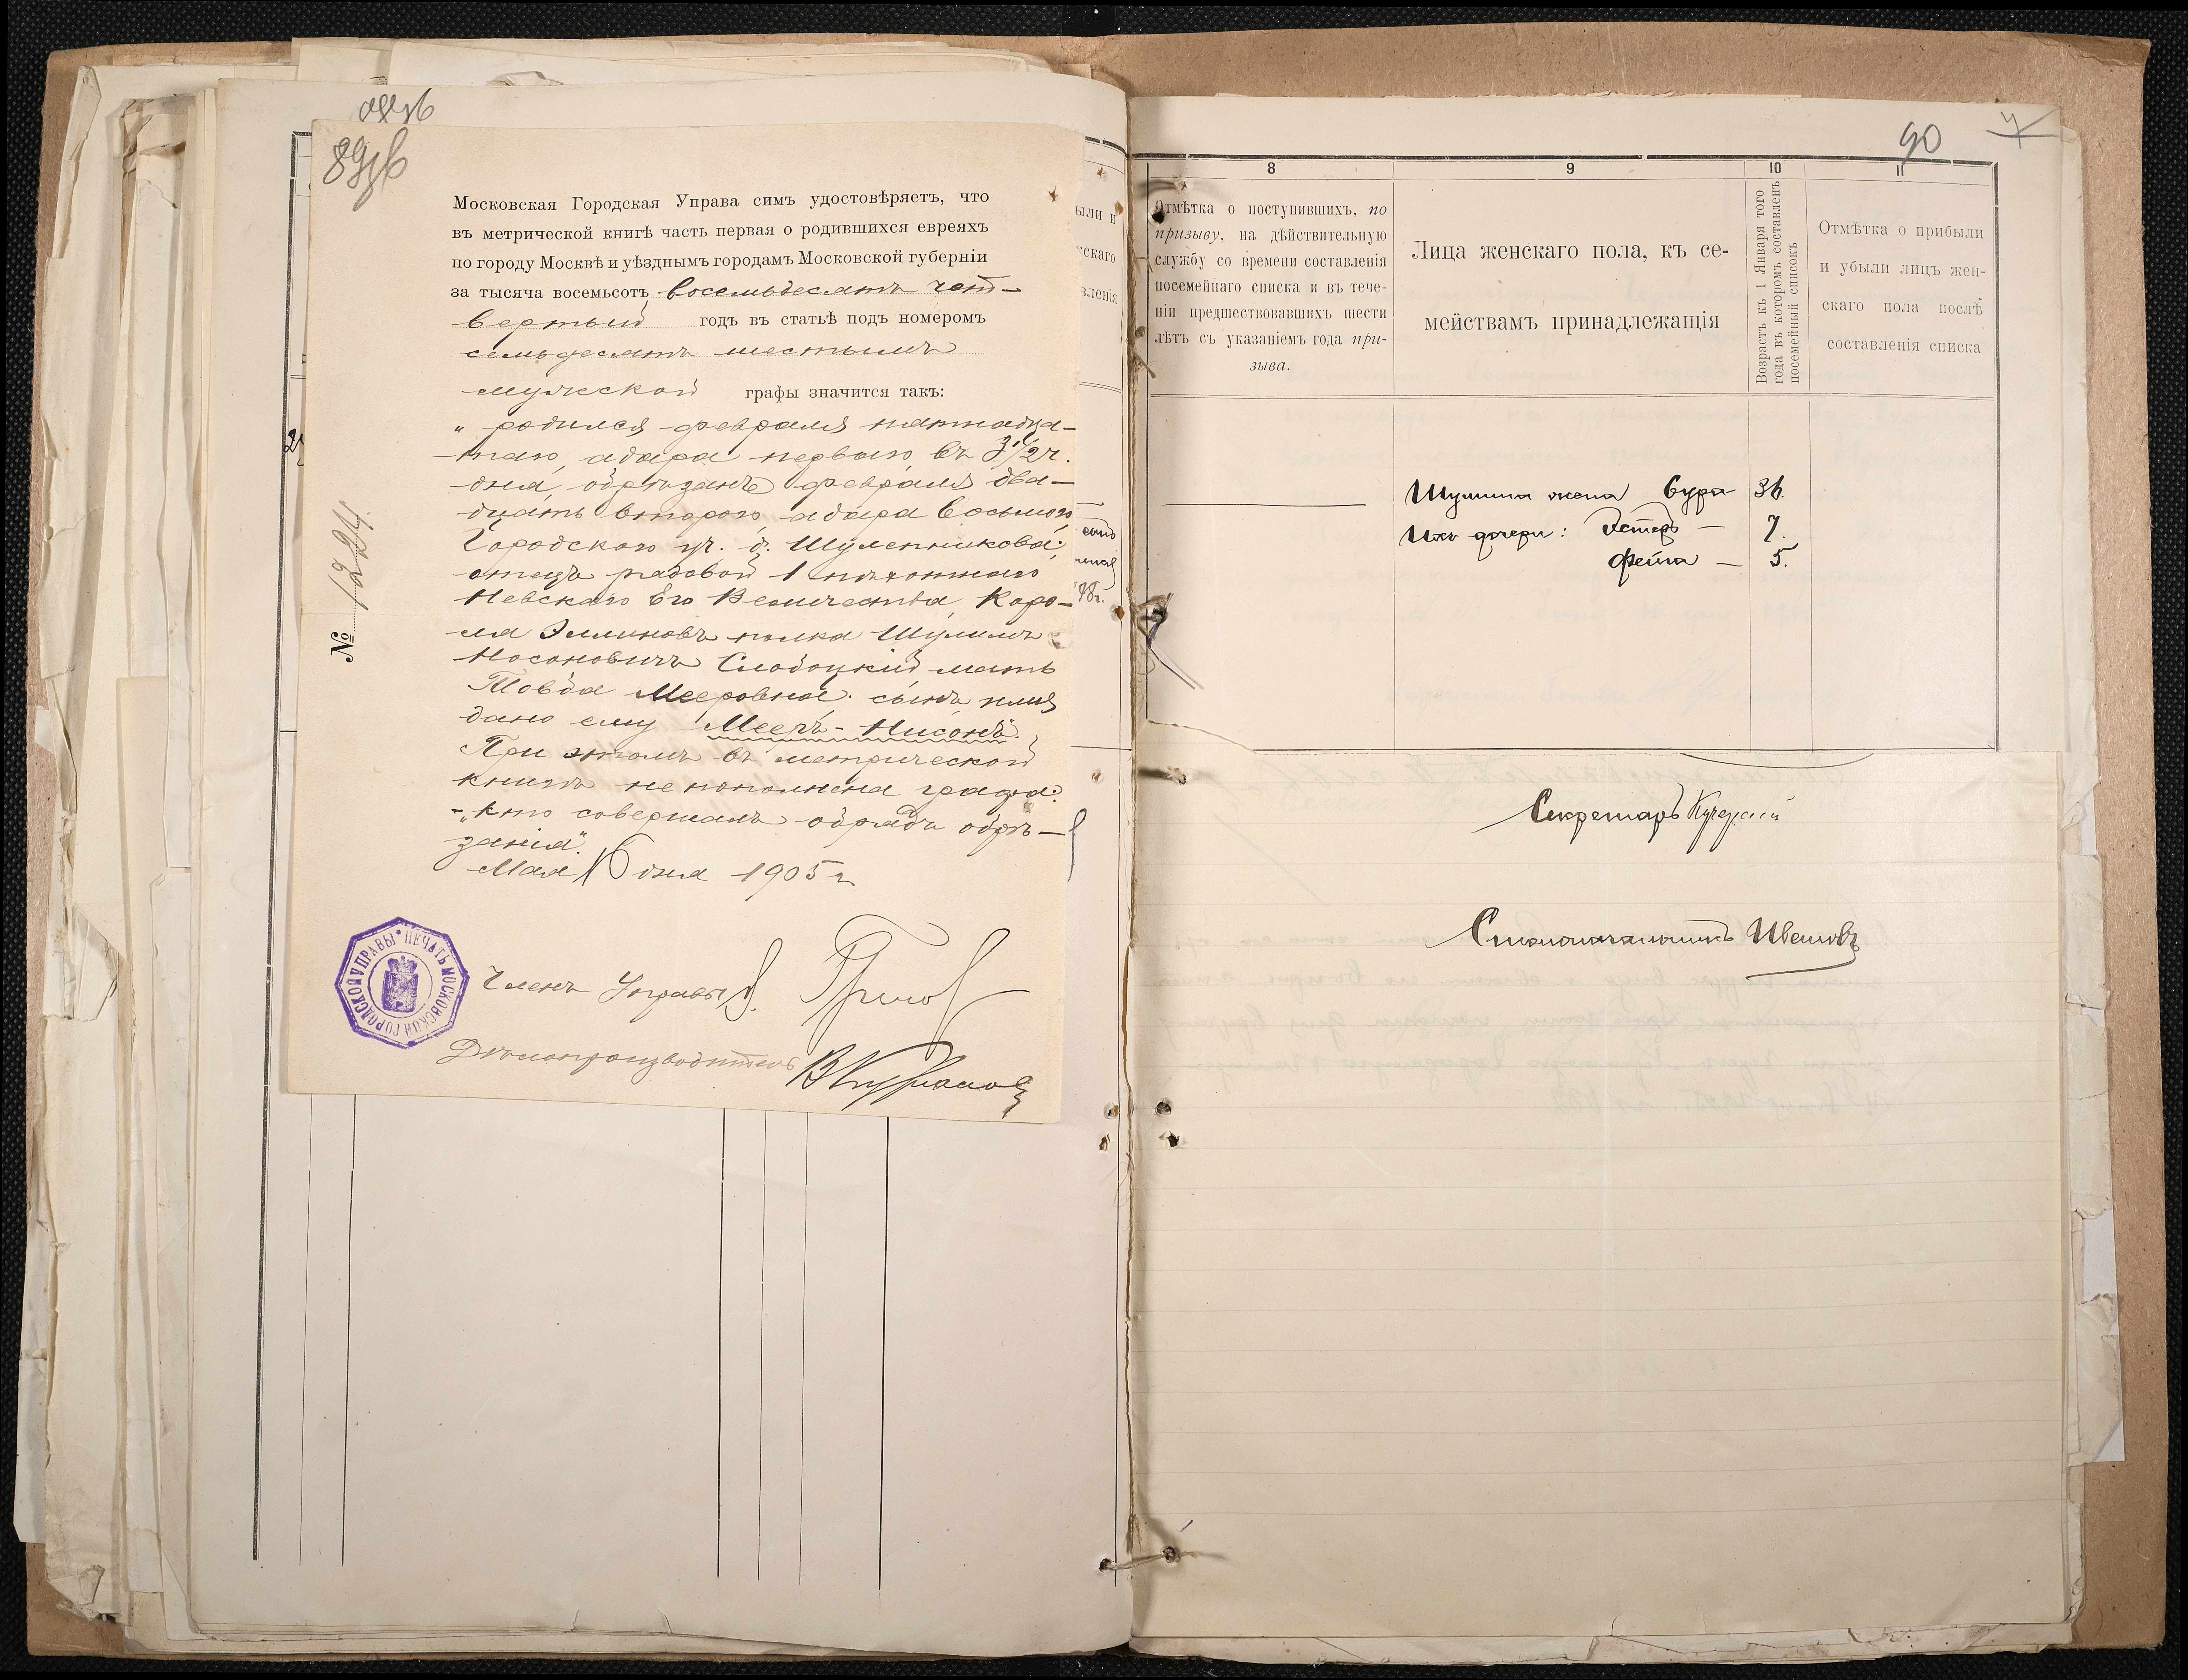 89
Московская Городская Управа симъ удостовѣряетъ, что
въ метрической книгѣ часть первая о родившихся евреяхъ
по городу Москвѣ и уѣзднымъ городамъ Московской губерніи
за тысяча восемьсотъ восемьдесятъ чет-
вертый годъ въ статьѣ подъ номеромъ
семьдесятъ шестымъ
мужской графы значится такъ:
„ родился февраля пятнадца-
таго, адара перваго, въ 3 1/2 ч.
дня, обрѣзанъ февраля два-
дцать второго, адара восьмого,
Городского уч. д. Шулепникова;
отецъ рядовой 1 пѣхотнаго
Невскаго Его Величества, Коро-
ля Эллиновъ полка Шулимъ
Носоновичъ Слободкій, мать
Товба Мееровна; сынъ, имя
дано ему „Мееръ-Нисонъ“.
При этомъ въ метрической
книгѣ не пополнена графа:
„кто совершалъ обрядъ обрѣ-
занія“.
Мая 16 дня 1905 г.
№ 1224
Членъ Управы
Дѣлопроизводитель
ПЕЧАТЬ МОСКОВСКОЙ ГОРОДСКОЙ УПРАВЫ
ыли и
скаго
вленія
90
8
9
10
11
Отмѣтка о поступившихъ, по
призыву, на дѣйствительную
службу со времени составленія
посемейнаго списка и въ тече-
ніи предшествовавшихъ шести
лѣтъ съ указаніемъ года при-
зыва.
Лица женскаго пола, къ се-
мействамъ принадлежащія
Возрастъ къ 1 Января того
года въ которомъ составленъ
посемейный списокъ
Отмѣтка о прибыли
и убыли лицъ жен-
скаго пола послѣ
составленія списка
Шулима жена Сура 36.
Ихъ дочери: Эстеръ — 7.
Фейга — 5.
Секретарь
Столоначальникъ